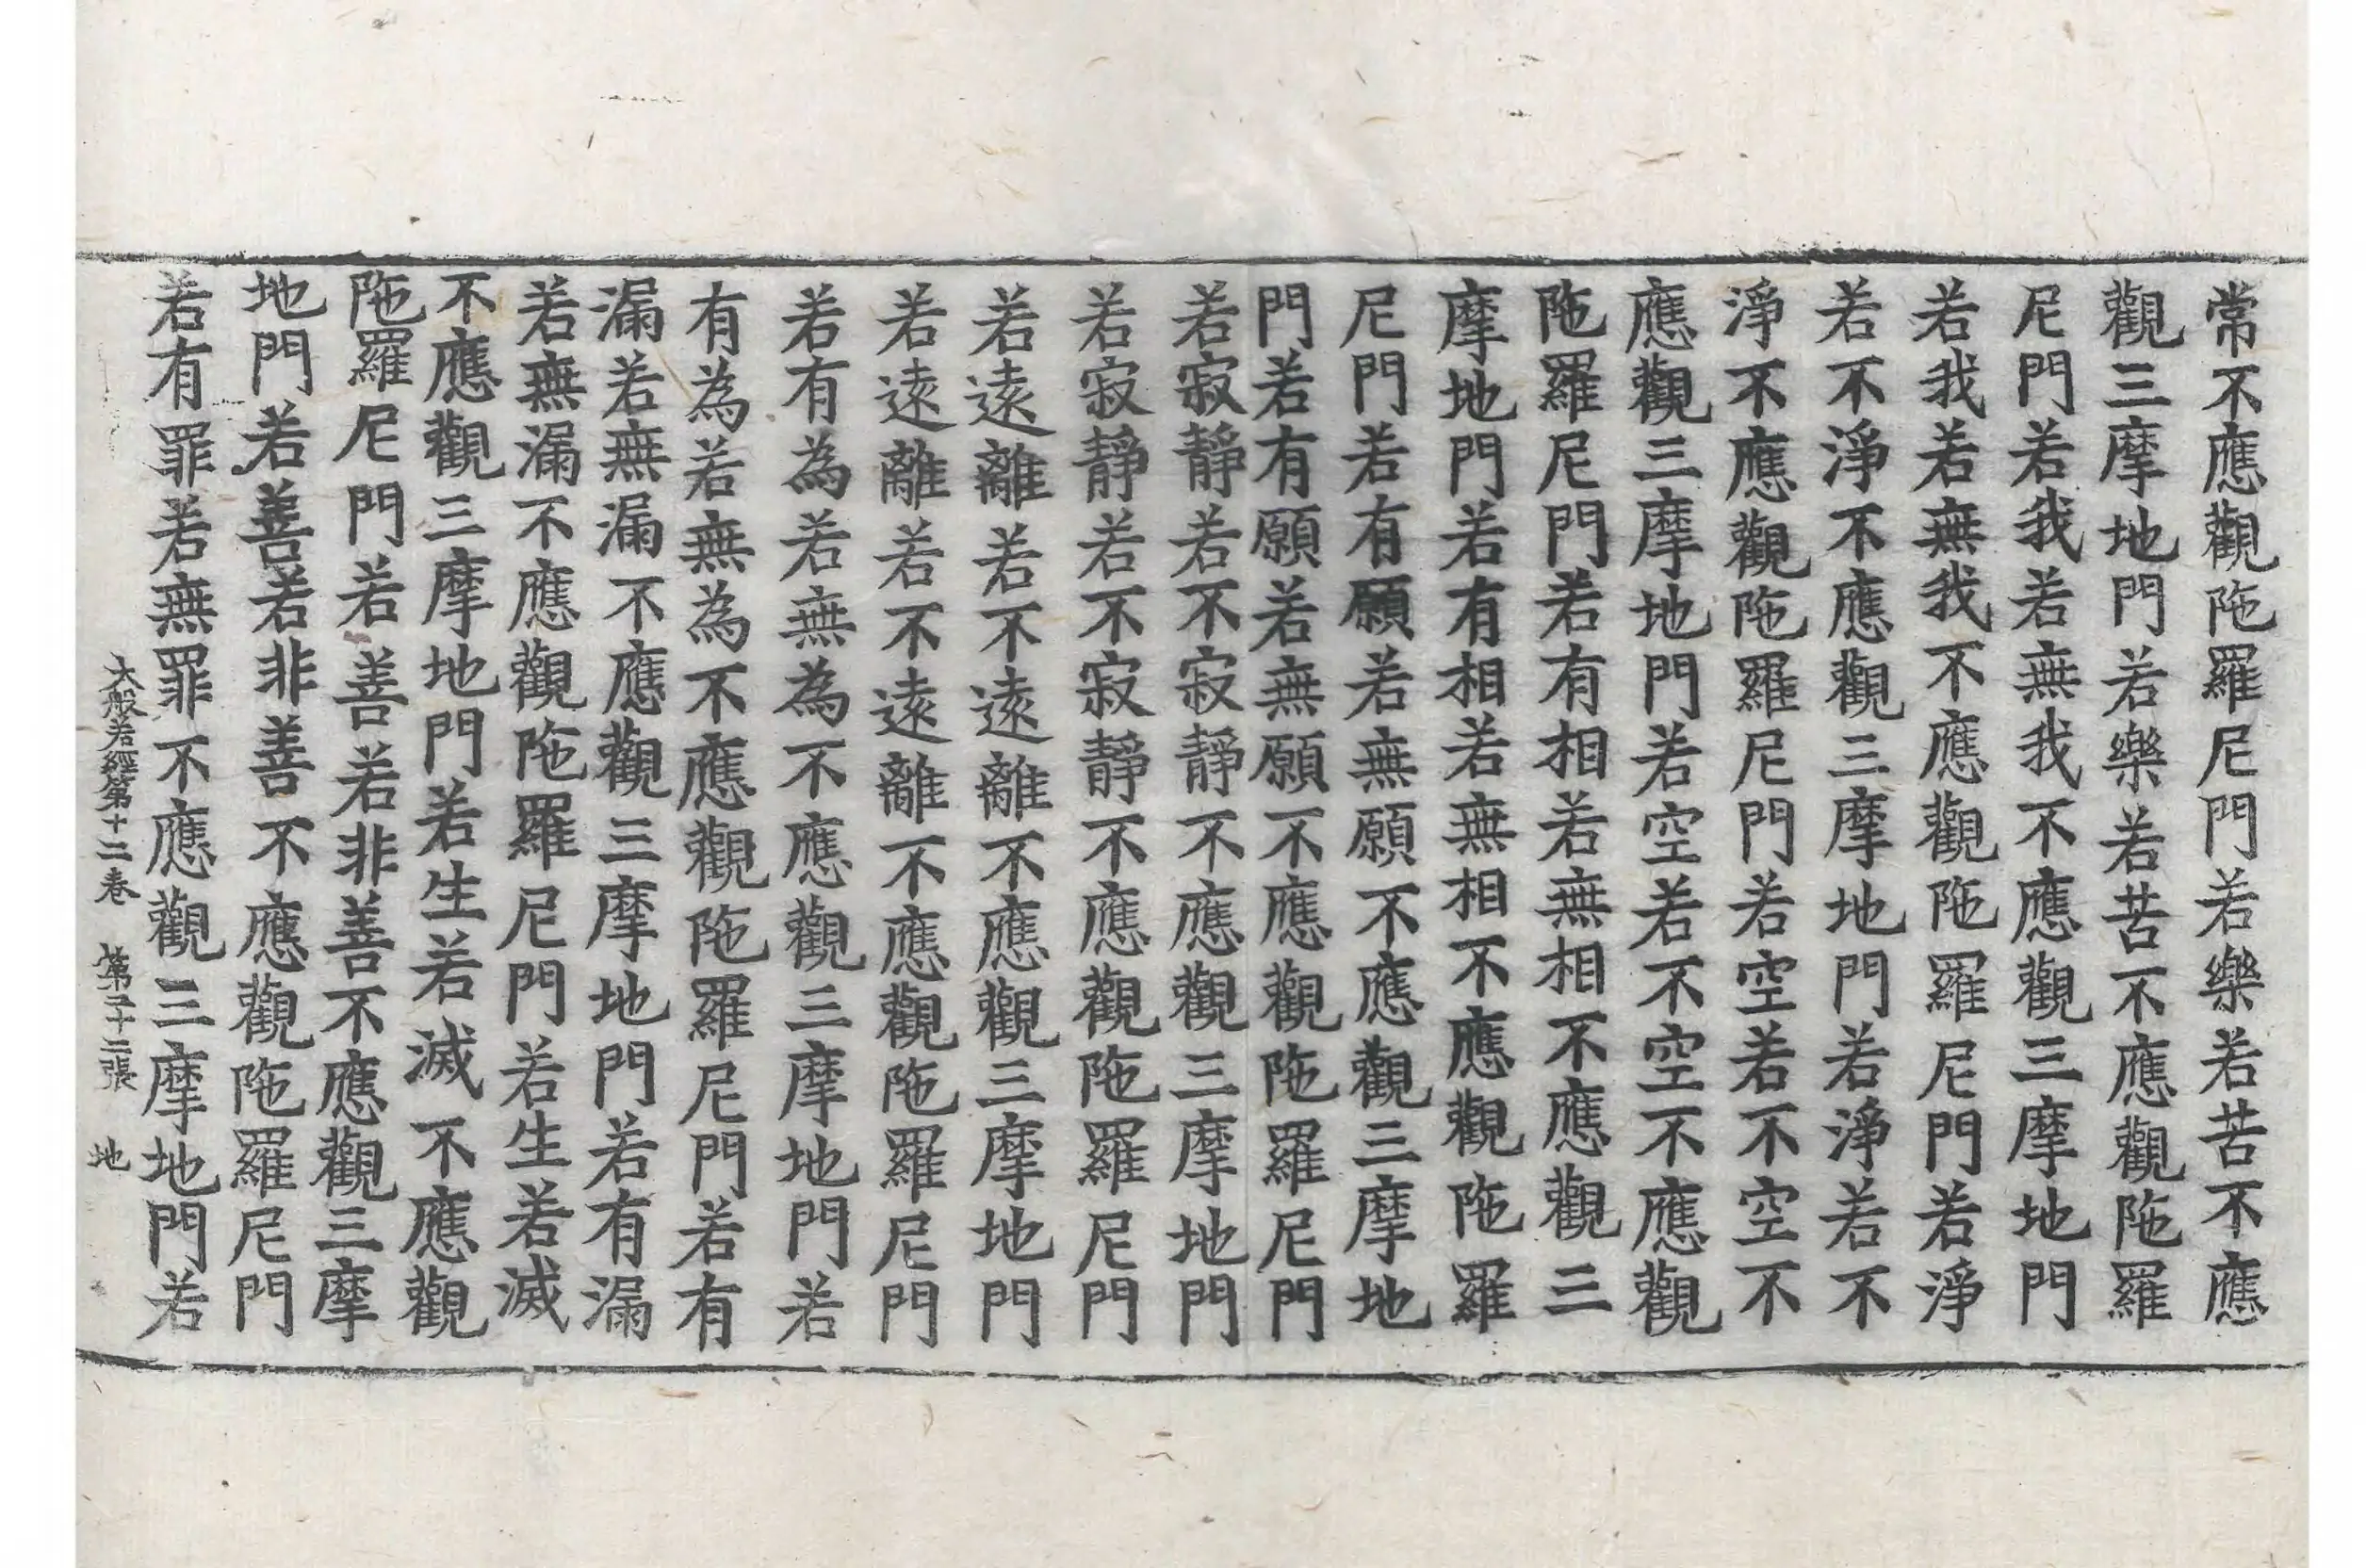 常不應觀陁羅尼門若樂若苦不應
觀三摩地門若樂若苦不應觀陁羅
尼門若我若無我不應觀三摩地門
若我若無我不應觀陁羅尼門若淨
若不淨不應觀三摩地門若淨若不
淨不應觀陁羅尼門若空若不空不
應觀三摩地門若空若不空不應觀
陁羅尼門若有相若無相不應觀三
摩地門若有相若無相不應觀陁羅
尼門若有願若無願不應觀三摩地
門若有願若無願不應觀陁羅尼門
若寂靜若不寂靜不應觀三摩地門
若寂靜若不寂靜不應觀陁羅尼門
若遠離若不遠離不應觀三摩地門
若遠離若不遠離不應觀陁羅尼門
若有為若無為不應觀三摩地門若
有為若無為不應觀陁羅尼門若有
漏若無漏不應觀三摩地門若有漏
若無漏不應觀陁羅尼門若生若滅
不應觀三摩地門若生若滅不應觀
陁羅尼門若善若非善不應觀三摩
地門若善若非善不應觀陁羅尼門
若有罪若無罪不應觀三摩地門若
大般若經第十二卷 第十二張 地